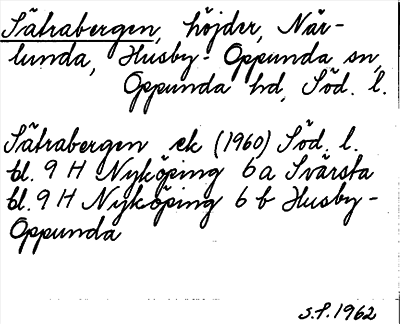 Sätrabergen, höjder, När-
lunda, Husby-Oppunda sn,
Oppunda hd, Söd. l.
Sätrabergen ek (1960) Söd. l.
bl. 9 H Nyköping 6 a Svärsta
bl. 9 H Nyköping 6 b Husby-
Oppunda
S.P. 1962